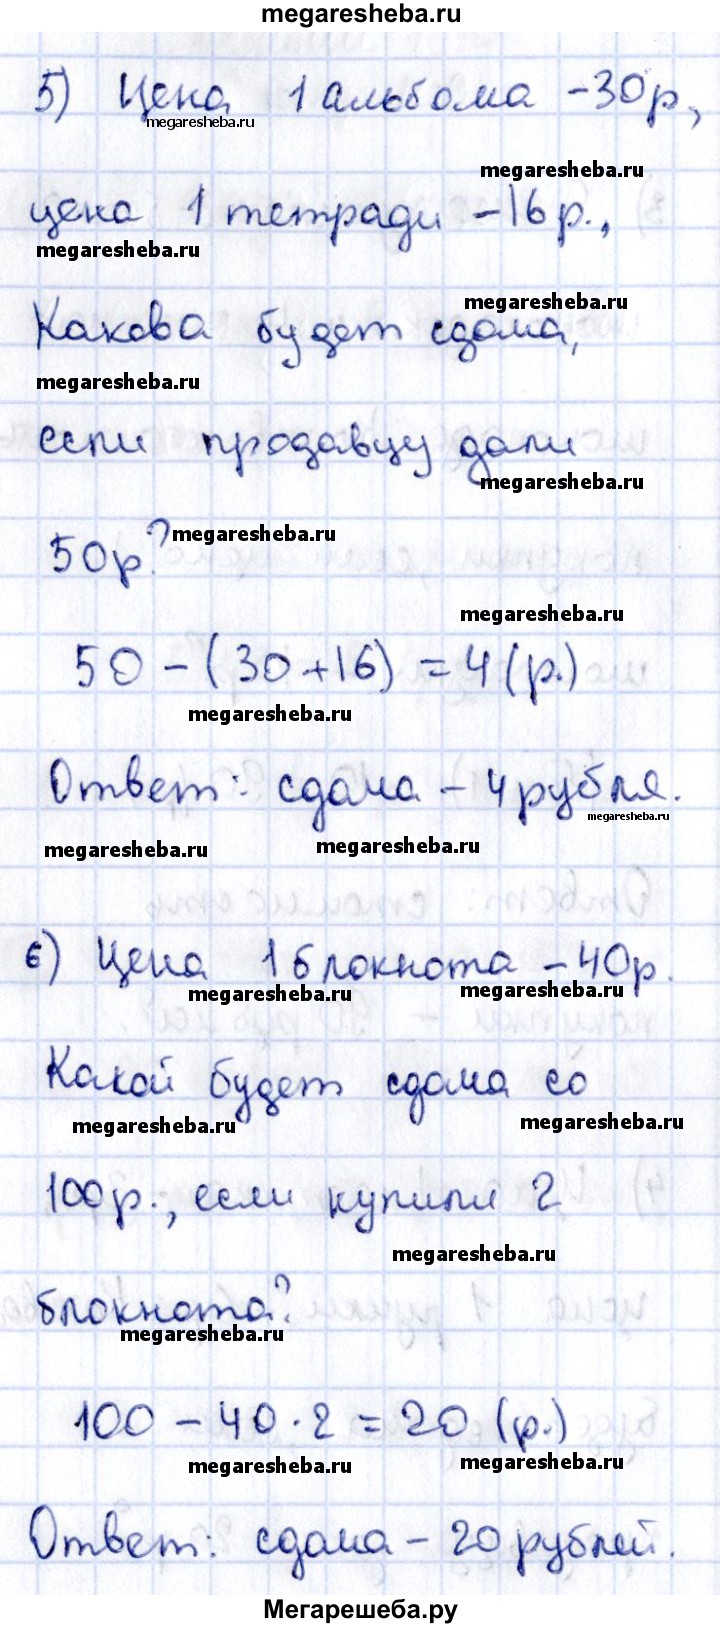 megaresheba.ru
5) Цена 1 альбома - 30 р.,
megaresheba.ru
megaresheba.ru
цена 1 тетради - 16 р.,
megaresheba.ru
megaresheba.ru
Какова будет сдача,
megaresheba.ru
если продавцу дали
megaresheba.ru
50 р.?
megaresheba.ru
megaresheba.ru
50 - (30 + 16) = 4 (р.)
megaresheba.ru
Ответ: сдача - 4 рубля.
megaresheba.ru
megaresheba.ru
megaresheba.ru
6) Цена 1 блокнота - 40 р.
megaresheba.ru
megaresheba.ru
Какой будет сдача со
megaresheba.ru
megaresheba.ru
100 р., если купили 2
megaresheba.ru
блокнота?
megaresheba.ru
100 - 40 · 2 = 20 (р.)
megaresheba.ru
megaresheba.ru
Ответ: сдача - 20 рублей.
Мегарешеба.ру